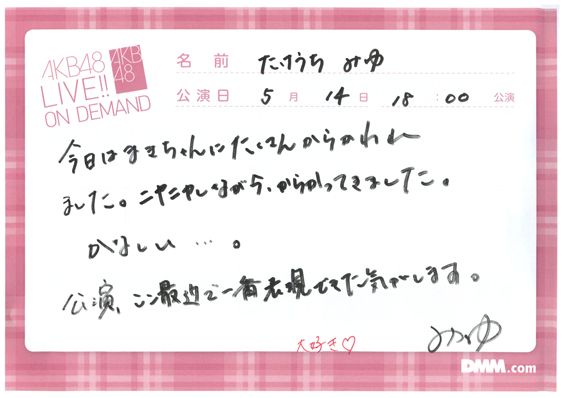 AKB48
LIVE!!
ON DEMAND
AKB
48
名前 たけうち みゆ
公演日 5月 14日 18:00 公演
今日はまきちゃんにたくさんからかわれ
ました。ニヤニヤしながら、からかってきました。
かなしい…。
公演、ここ最近で一番表現できた気がします。
大好き♡
みゆ
DMM.com